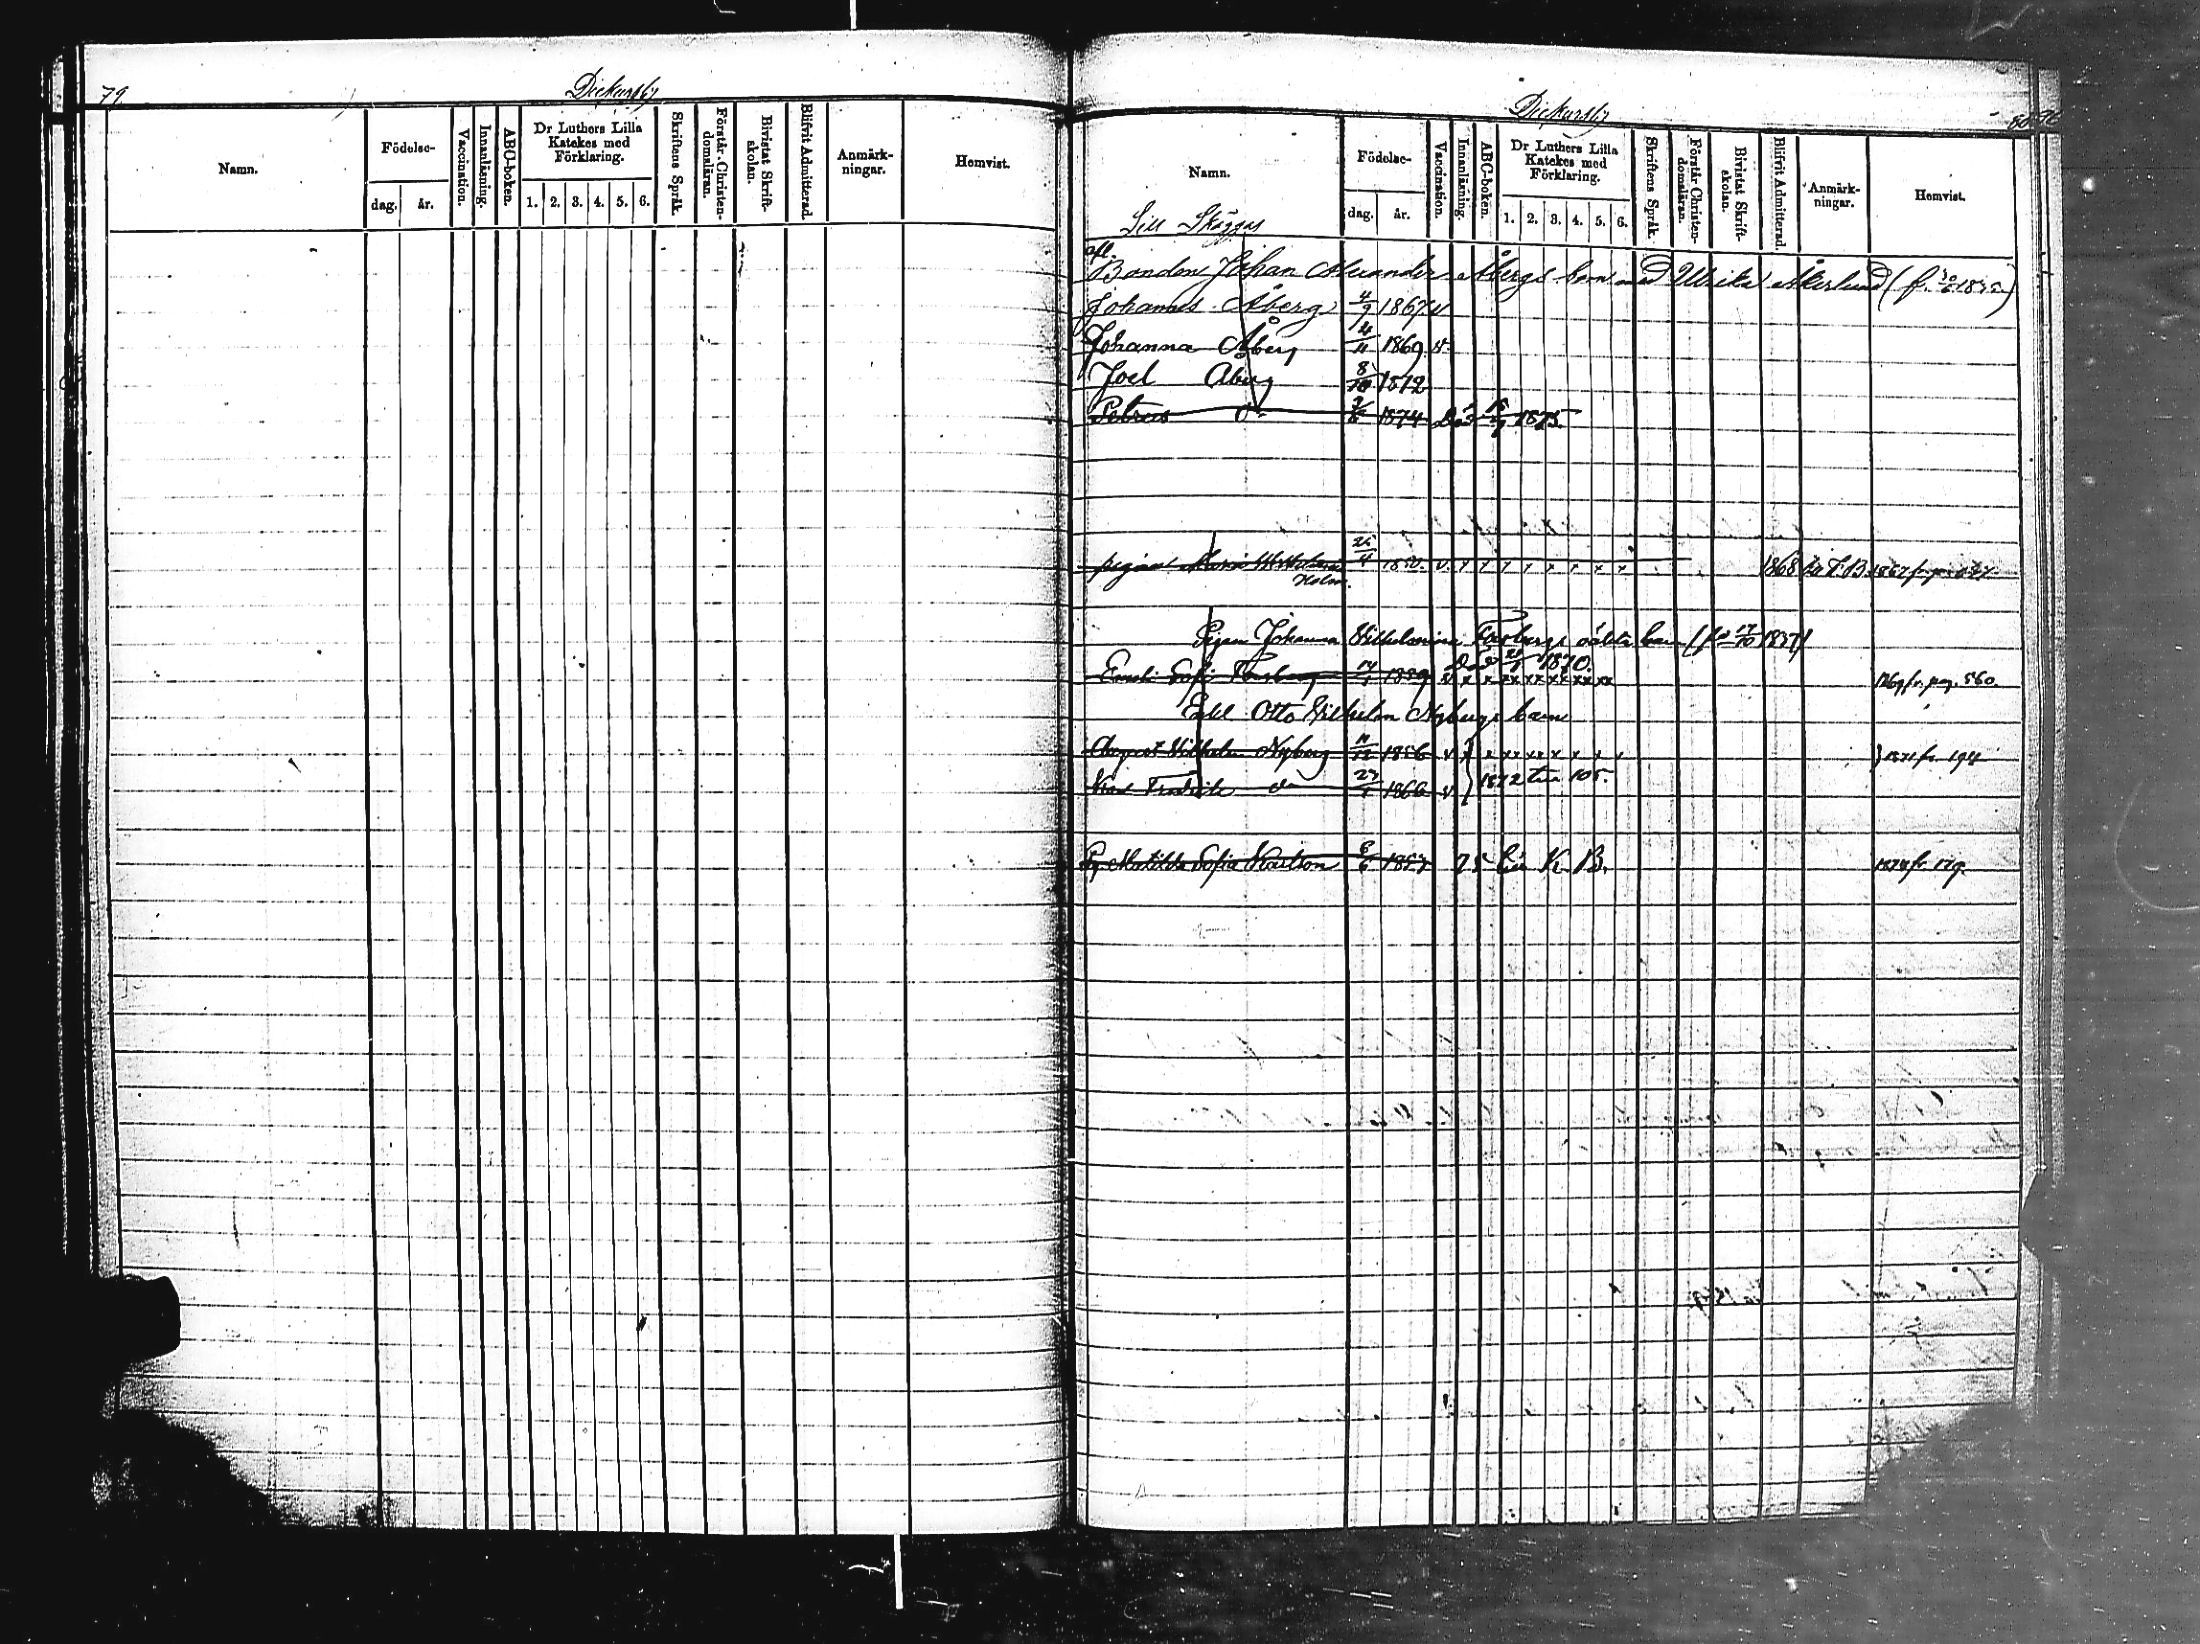 79
Dickursby
Namn.
Födelse-
dag. år.
Vaccination.
Innanläsning.
ABC-boken.
Dr Luthers Lilla Katekes med Förklaring.
1. 2. 3. 4. 5. 6.
Skriftens Språk.
Förstår Christen-domsläran.
Bivistat Skrift-skolan.
Blifvit Admitterad.
Anmärk-ningar.
Hemvist.
Dickursby
80
Namn.
Födelse-
dag. år.
Vaccination.
Innanläsning.
ABC-boken.
Dr Luthers Lilla Katekes med Förklaring.
1. 2. 3. 4. 5. 6.
Skriftens Språk.
Förstår Christen-domsläran.
Bivistat Skrift-skolan.
Blifvit Admitterad.
Anmärk-ningar.
Hemvist.
Lill Skäggas
afl.
Bonden Johan Alexander Åbergs barn med Ulrika Åkerlund
Johannes Åberg 4/9 1867 v
Johanna Åberg 4/11 1869 v.
Joel Åberg 8/10 1872
Petrus d:o 1874 Död 1875.
pigan Maria 25/4 1850. v. x x x x x x x 1868
Holm.
Pigan Johanna Vilhelmina Forsbergs oäkta barn (f. 17/10 1837)
Död 1870.
Emeli Sofi Forsberg 14/1 1859 v x x xx xx xx xx xx 1869 fr. pag. 560.
Enkl. Otto Vilhelm Nybergs barn
August Vilhelm Nyberg 11/12 1856 v x x xx xx x x x 1871 fr. 194
Karl Fredrik d:o 27/1 1866 v 1872 till 105.
Pig. Matilda Sofia Karlson 6/6 1857 75 till K. B. 1874 fr. 179.